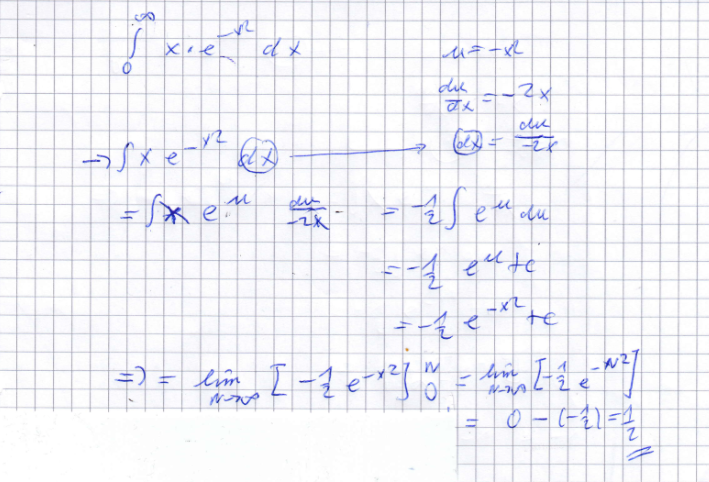 ∫₀^∞ x · e^(-x²) dx
u = -x²
du/dx = -2x
dx = du/(-2x)
→ ∫ x e^(-x²) dx →
= ∫ x e^u du/(-2x) = -1/2 ∫ e^u du
= -1/2 e^u + c
= -1/2 e^(-x²) + c
=> = lim N→∞ [ -1/2 e^(-x²) ] N 0 = lim N→∞ [ -1/2 e^(-N²) ]
= 0 - (-1/2) = 1/2